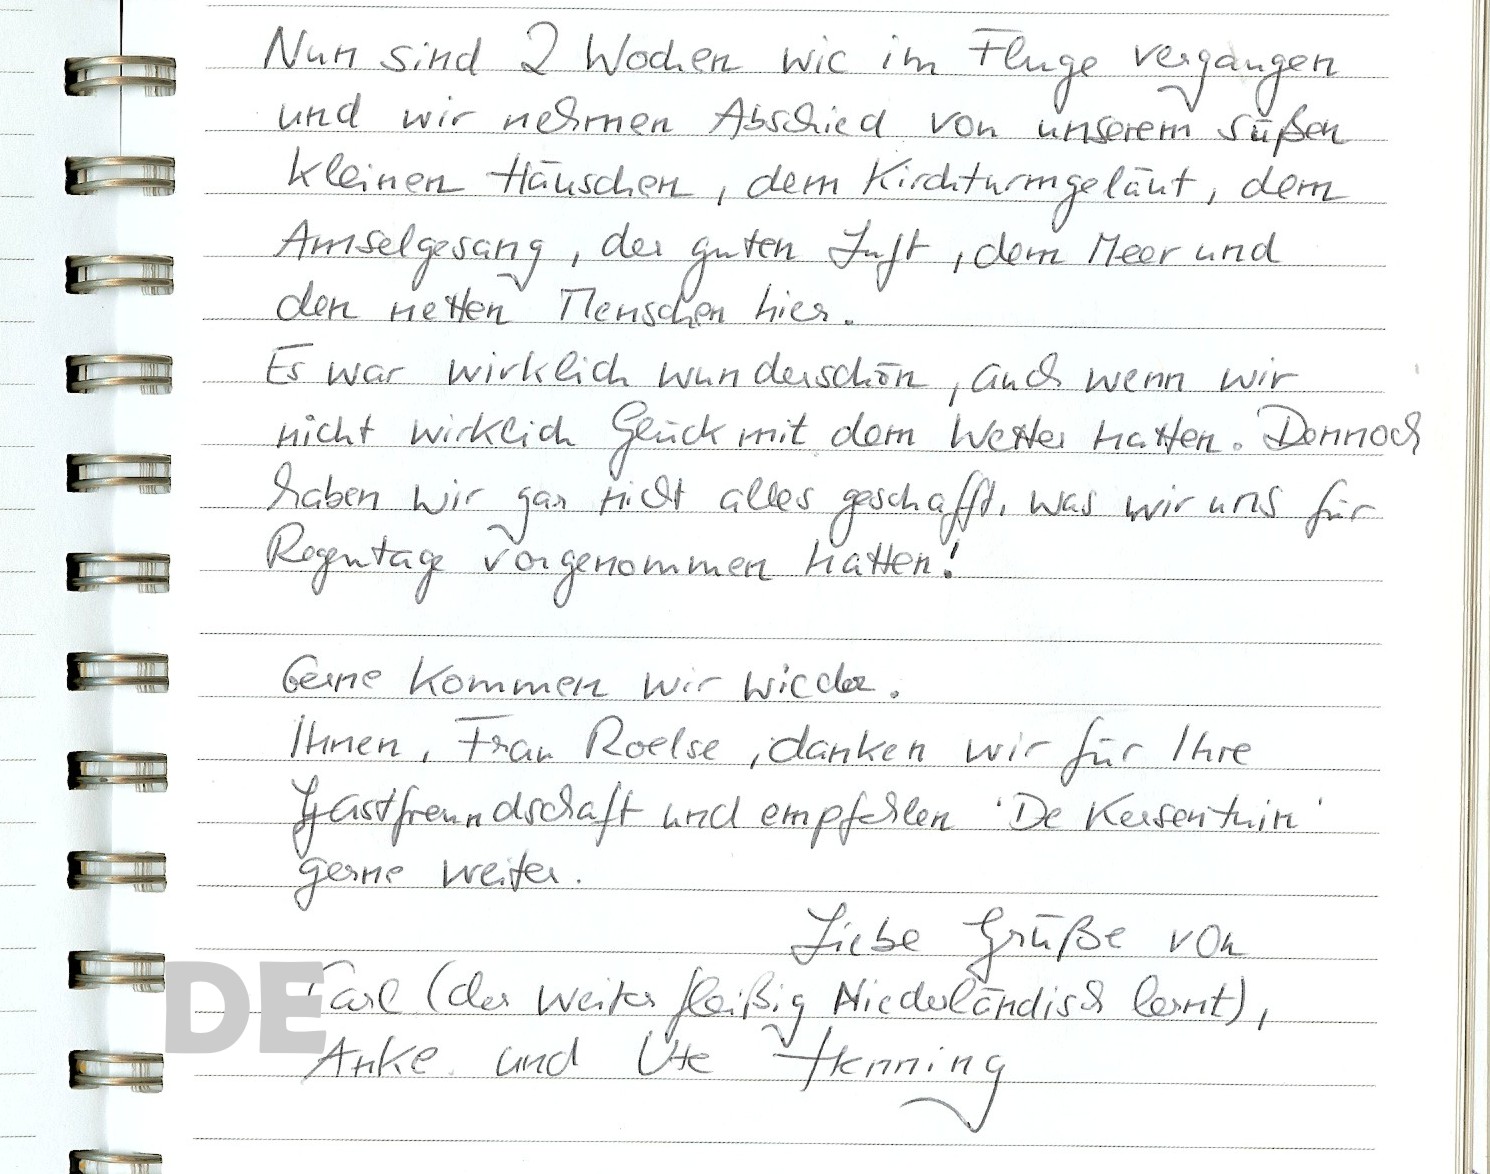 Nun sind 2 Wochen wie im Fluge vergangen
und wir nehmen Abschied von unserem süßen
kleinen Häuschen, dem Kirchturmgeläut, dem
Amselgesang, der guten Luft, dem Meer und
den netten Menschen hier.
Es war wirklich wunderschön, auch wenn wir
nicht wirklich Glück mit dem Wetter hatten. Dennoch
haben wir gar nicht alles geschafft, was wir uns für
Regentage vorgenommen hatten!
Gerne kommen wir wieder.
Ihnen, Frau Roelse, danken wir für Ihre
Gastfreundschaft und empfehlen 'De Kersentuin'
gerne weiter.
Liebe Grüße von
DE
Carl (der weiter fleißig Niederländisch lernt),
Anke und Ute Henning